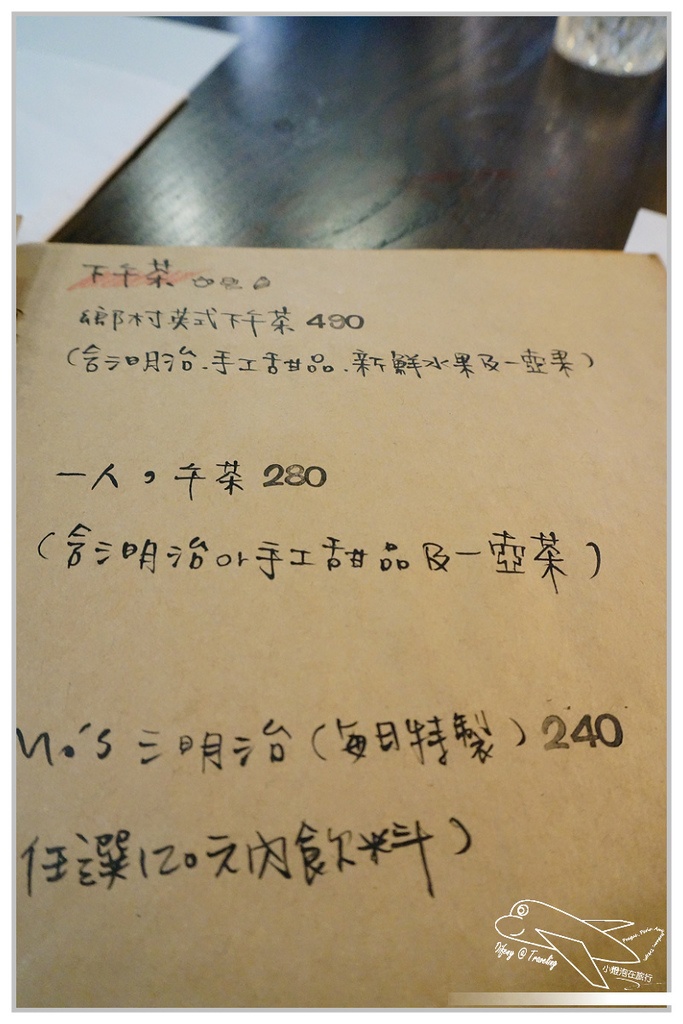 下午茶
鄉村英式下午茶 490
(含三明治.手工甜品.新鮮水果及一壺茶)
一人,午茶 280
(含三明治or手工甜品及一壺茶)
No's 三明治(每日特製) 240
任選120元內飲料)
Difeny @ Traveling
小燈泡在旅行